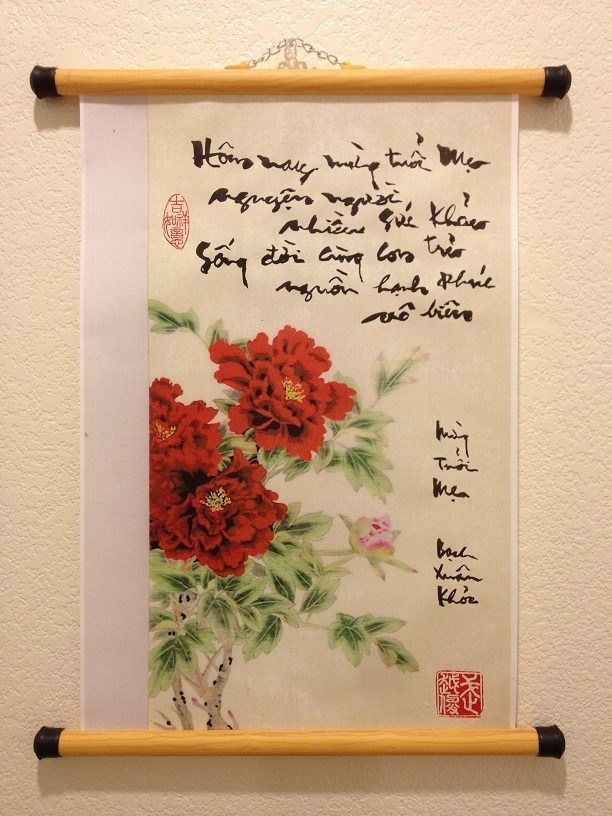 Hôm nay mừng tuổi Mẹ
nguyện người
nhiều sức khỏe
Sống đời cùng con trẻ
nguồn hạnh phúc
vô biên
吉祥如意
Mừng
Tuổi
Mẹ
Bạch
Xuân
Phẻ